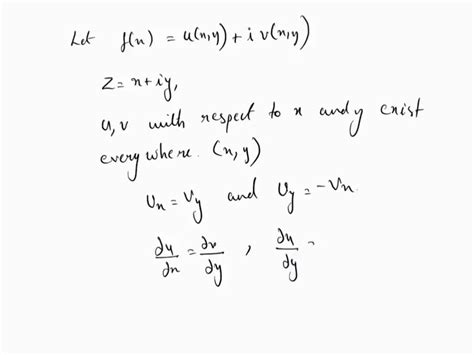 Let f(x) = u(x,y) + i v(x,y)
z = x+iy,
u,v with respect to x and y exist
everywhere. (x,y)
Ux = Vy and Uy = -Vx.
∂u/∂x = ∂v/∂y , ∂u/∂y =